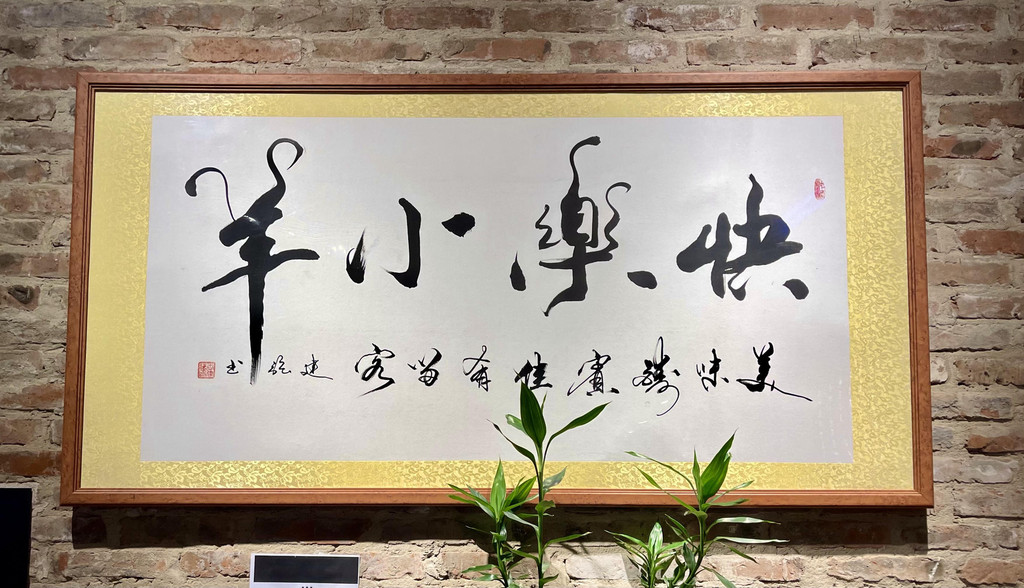 快樂小羊
美味酬賓佳肴留客 建 书